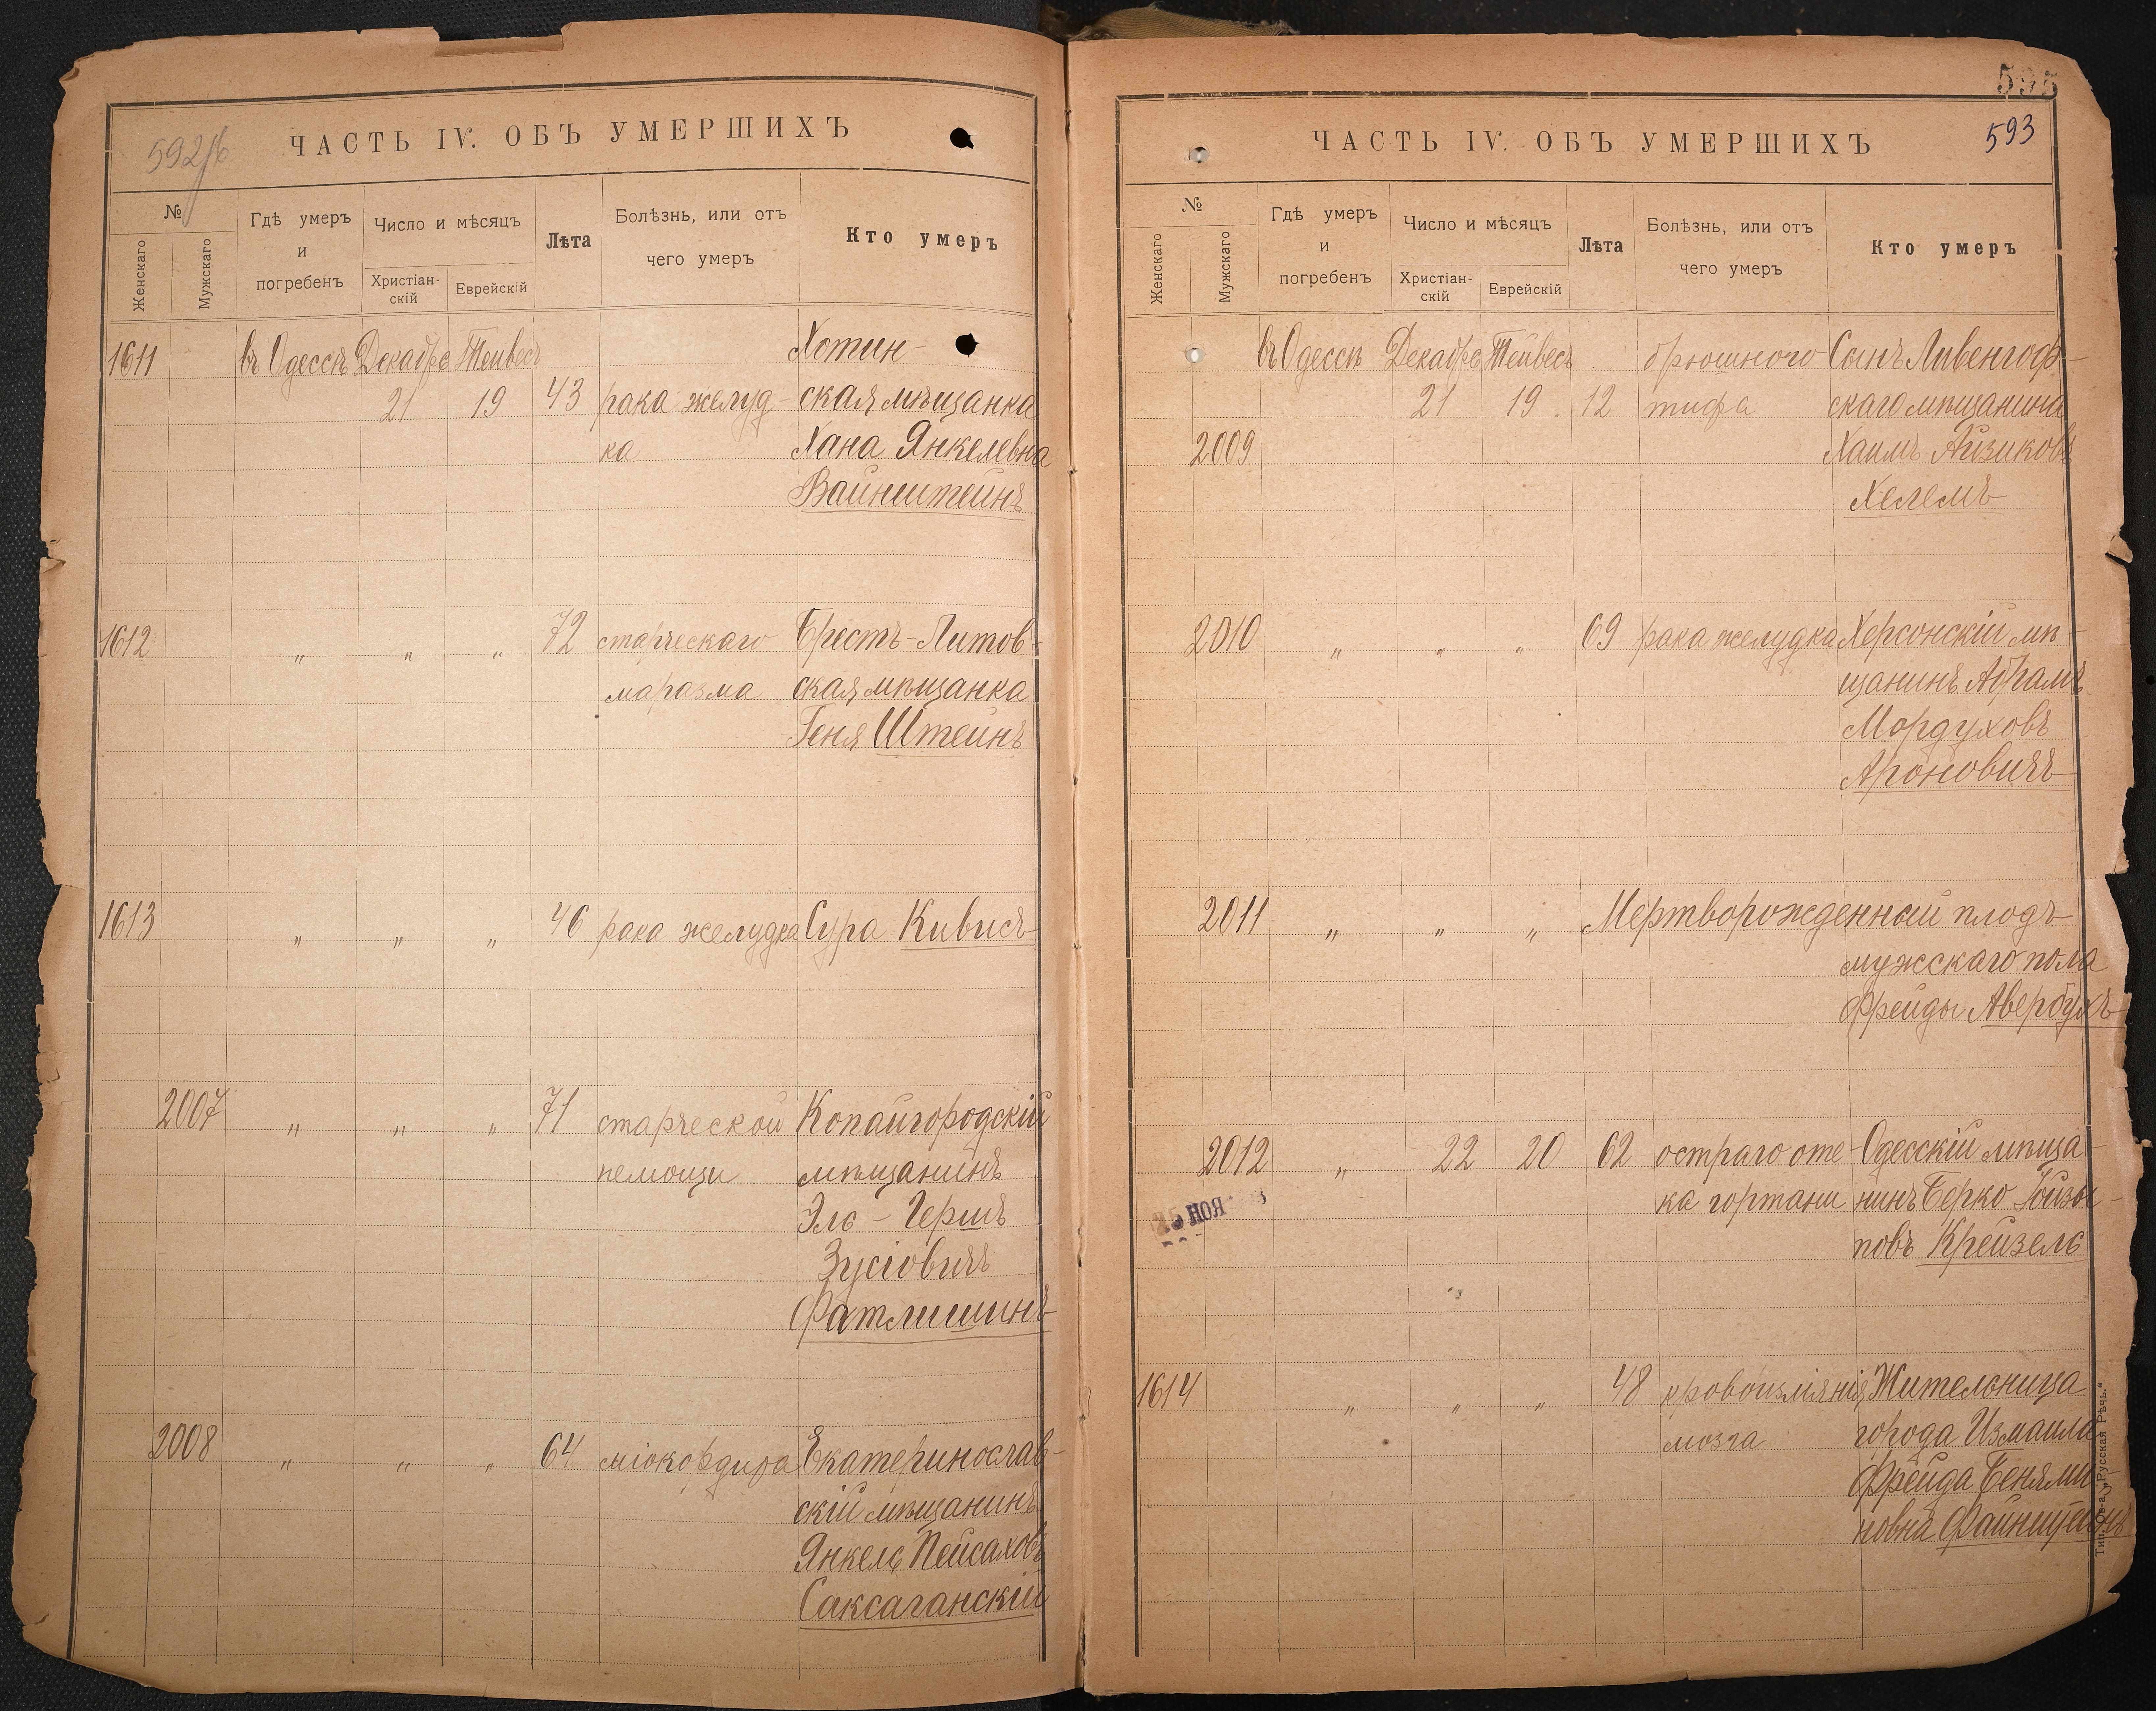 592/б
ЧАСТЬ IV. ОБЪ УМЕРШИХЪ
№
Женскаго
Мужскаго
Гдѣ умеръ
и
погребенъ
Число и мѣсяцъ
Христіан-
скій
Еврейскій
Лѣта
Болѣзнь, или отъ
чего умеръ
Кто умеръ
1611 въ Одессѣ Декабрь Тейвесъ Хотин-
21 19 43 рака желуд- ская мѣщанка
ка Хана Янкелевна
Вайнштейнъ
1612 " " " 72 старческаго Брестъ-Литов-
маразма ская мѣщанка
Геня Штейнъ
1613 " " " 46 рака желудка Сура Кивисъ
2007 " " " 71 старческой Копайгородскій
немощи мѣщанинъ
Эль-Гершъ
Зусіовичъ
Фатлишинъ
2008 " " " 64 міокордира Екатеринослав-
скій мѣщанинъ
Янкель Пейсаховъ
Саксаганскій
595
593
ЧАСТЬ IV. ОБЪ УМЕРШИХЪ
№
Женскаго
Мужскаго
Гдѣ умеръ
и
погребенъ
Число и мѣсяцъ
Христіан-
скій
Еврейскій
Лѣта
Болѣзнь, или отъ
чего умеръ
Кто умеръ
въ Одессѣ Декабрь Тейвесъ брюшного Сынъ Ливенгоф-
21 19 12 тифа скаго мѣщанина
2009 Хаимъ Айзиковъ
Хелемъ
2010 " " " 69 рака желудка Херсонскій мѣ-
щанинъ Абрамъ
Мордуховъ
Ароновичъ
2011 " " " Мертворожденный плодъ
мужскаго пола
Фрейды Авербухъ
2012 " 22 20 62 остраго оте- Одесскій мѣща-
25 НОЯ
ка гортани нинъ Берко
повъ Крейзель
1614 " " " 48 кровоизліянія Жительница
мозга города Измаила
Фрейда Бенями-
новна Файнштейнъ
Тип. Об-а „Русская Рѣчь."